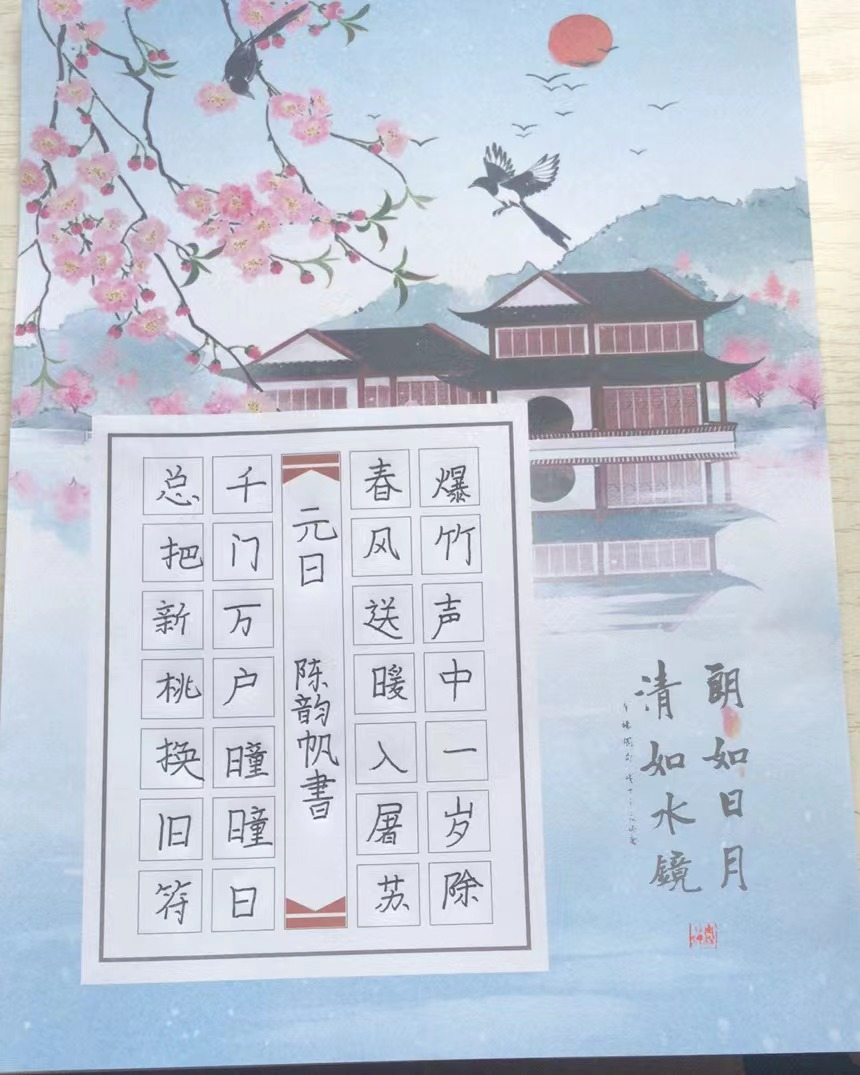 爆竹声中一岁除
春风送暖入屠苏
元日 陈韵帆書
千门万户曈曈日
总把新桃换旧符
朗如日月
清如水镜